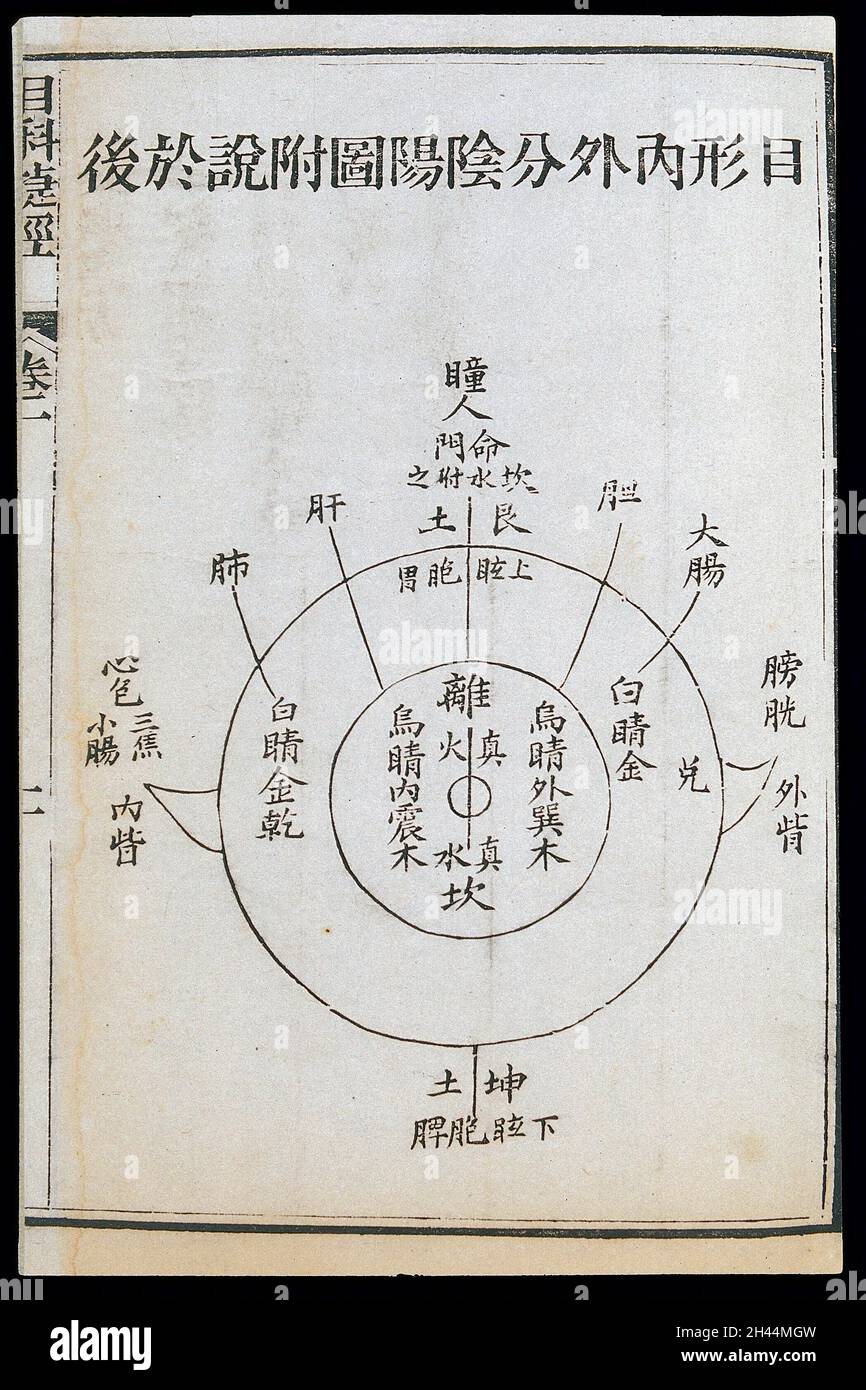 目形內外分陰陽圖附說於後
目科捷徑
卷二
二
瞳人
命門
坎水附之
艮土
上眩胞胃
肝
胆
肺
大腸
心包
三焦
小腸
內眥
膀胱
外眥
兌
白睛金
白睛金乾
烏睛外巽木
烏睛內震木
離
真火
真水
坎
坤土
下眩胞脾
alamy
Image ID: 2H44MGW
www.alamy.com